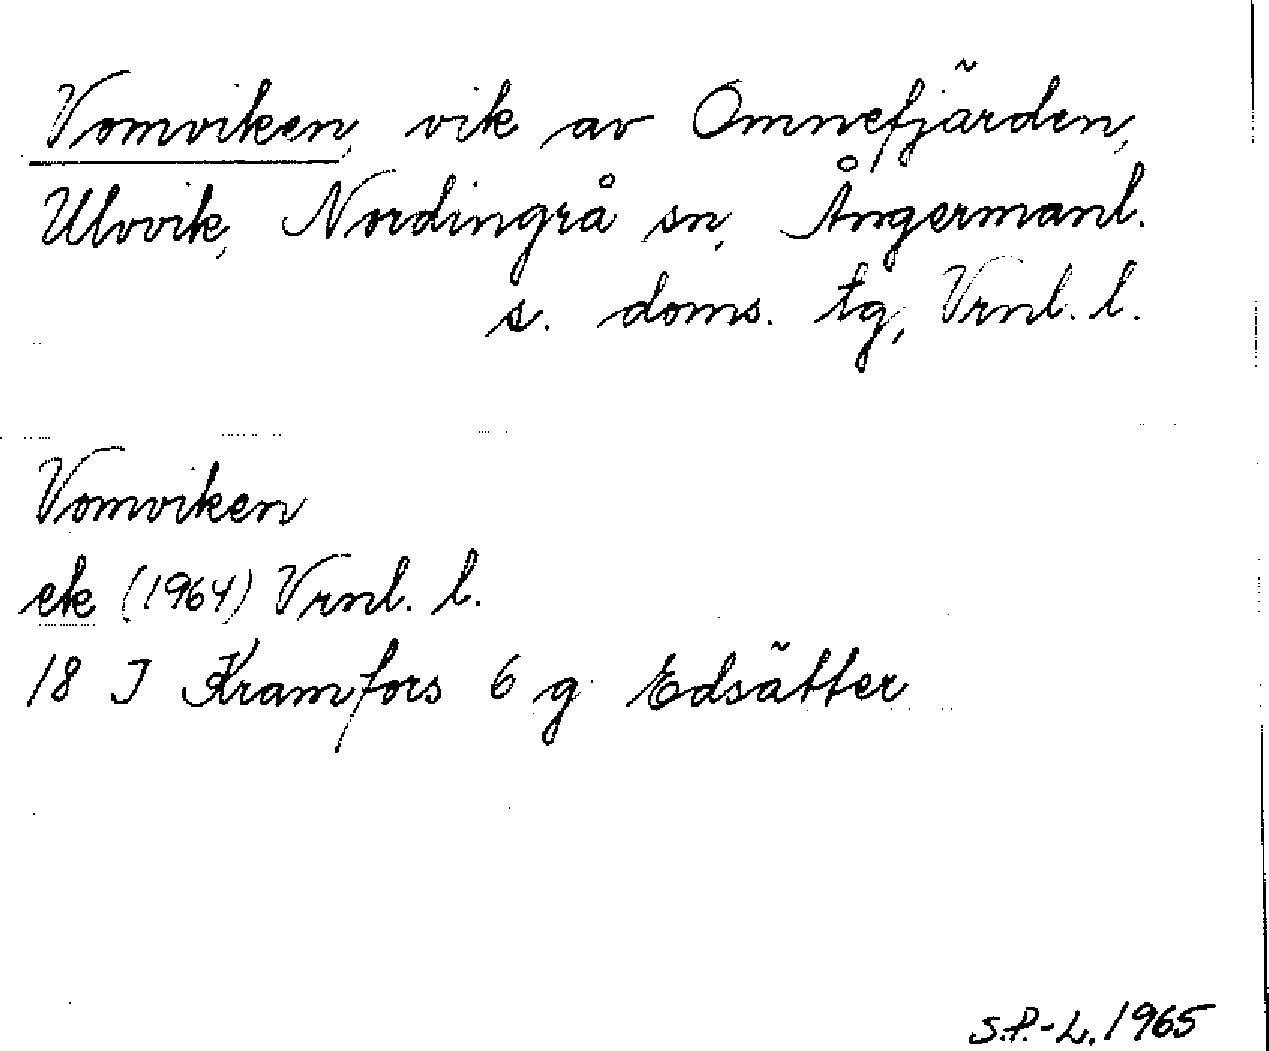 Vomviken, vik av Omnefjärden,
Ulvvik, Nordingrå sn, Ångermanl.
s. doms. tg, Vrnl. l.
Vomviken
ek (1964) Vrnl. l.
18 I Kramfors 6 g Edsätter
S.P.-L. 1965